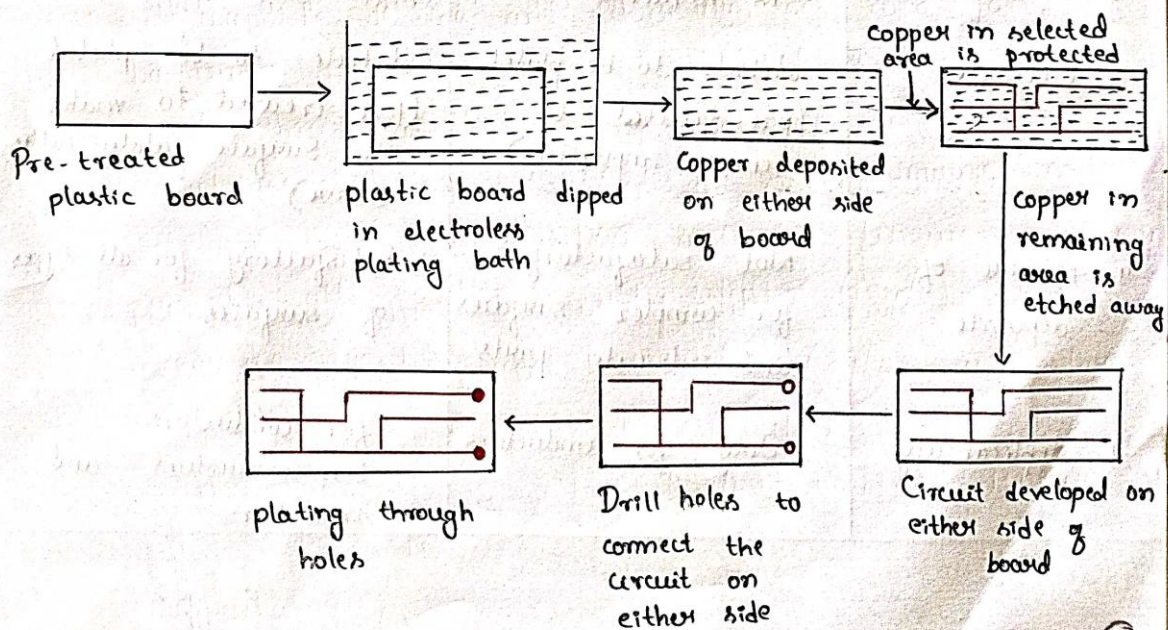 Pre-treated
plastic board
plastic board dipped
in electroless
plating bath
Copper deposited
on either side
of board
copper in selected
area is protected
copper in
remaining
area is
etched away
Circuit developed on
either side of
board
Drill holes to
connect the
circuit on
either side
plating through
holes